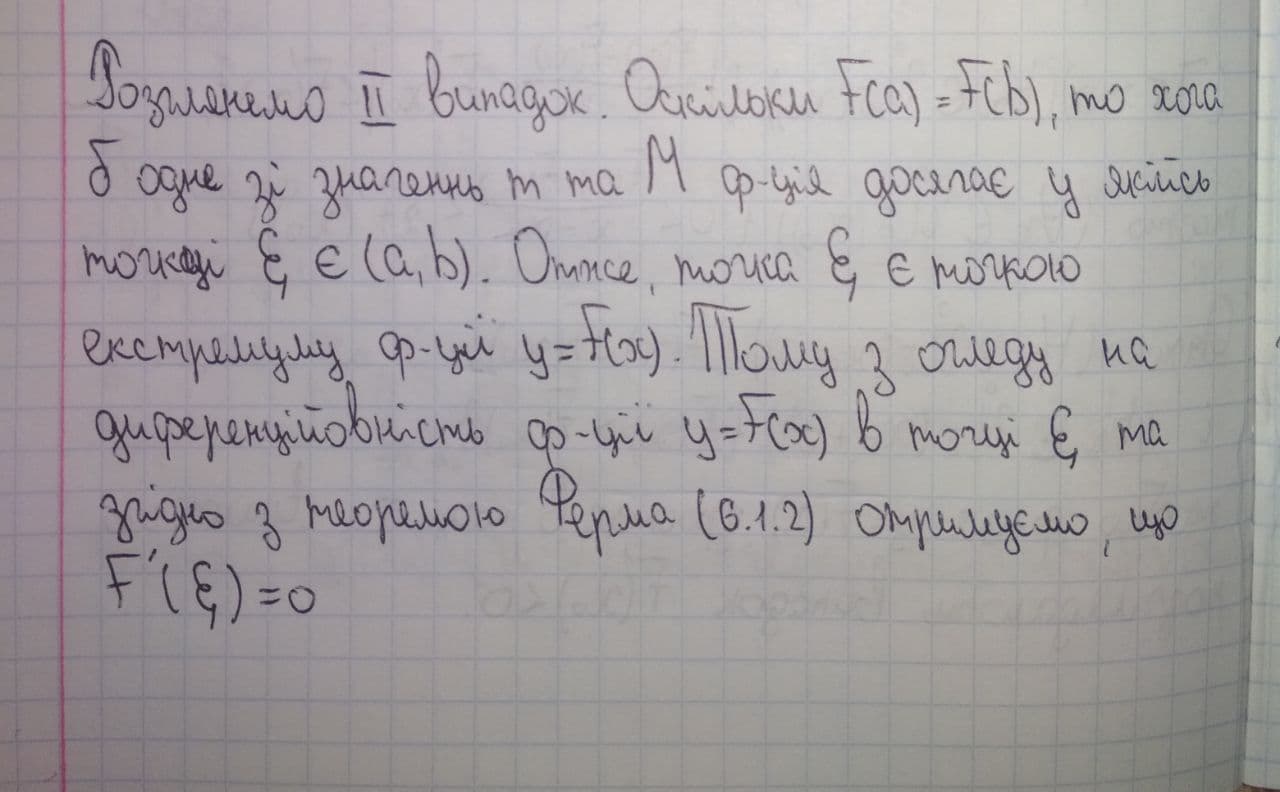 Розглянемо II випадок. Оскільки F(a) = F(b), то хоча
б одне зі значеннь m та M ф-ція досягає у якійсь
точці ξ є (a, b). Отже, точка ξ є точкою
екстремуму ф-ції y = F(x). Тому з огляду на
диференційовність ф-ції y = F(x) в точці ξ та
згідно з теоремою Ферма (6.1.2) отримуємо, що
F'(ξ) = 0